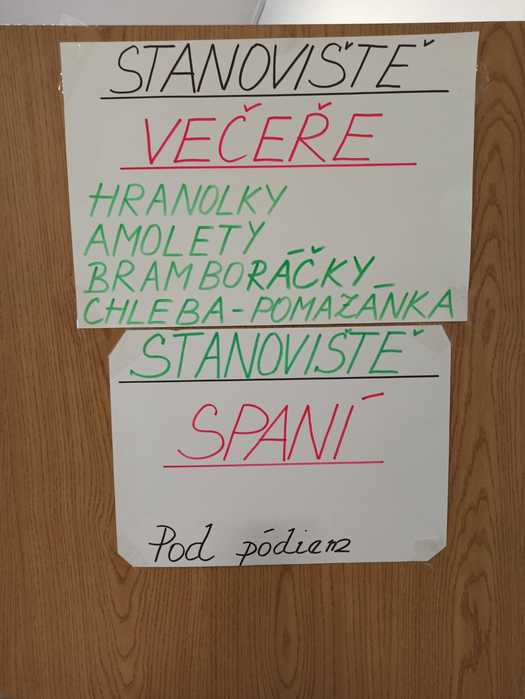 STANOVIŠTĚ
VEČEŘE
HRANOLKY
AMOLETY
BRAMBORÁČKY
CHLEBA-POMAZÁNKA
STANOVIŠTĚ
SPANÍ
Pod pódiem